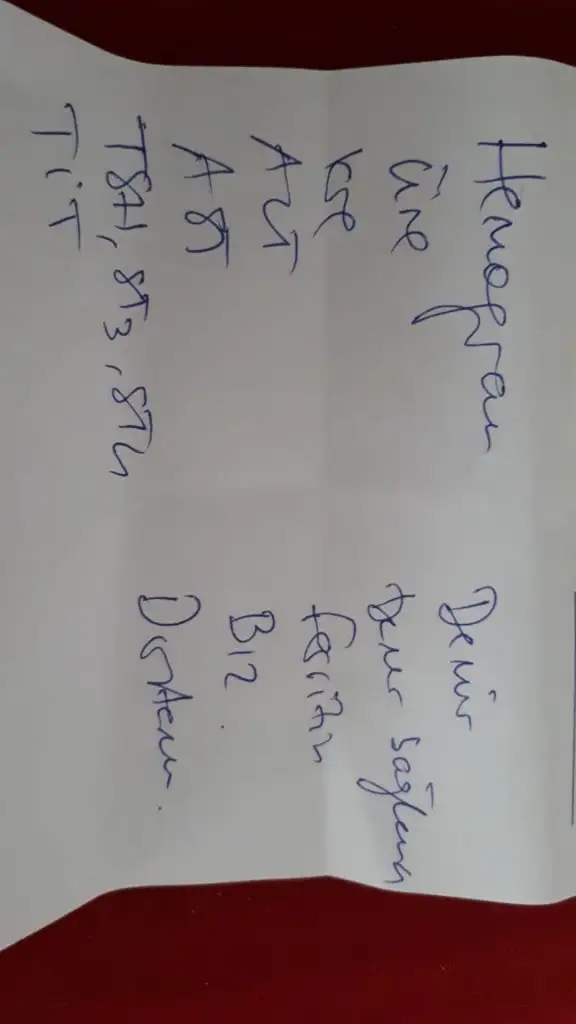 Hemogram
Üre
kre
ALT
AST
TSH, ST3, ST4
TİT
Demir
Demir bağlama
ferritin
B12
D vitamin